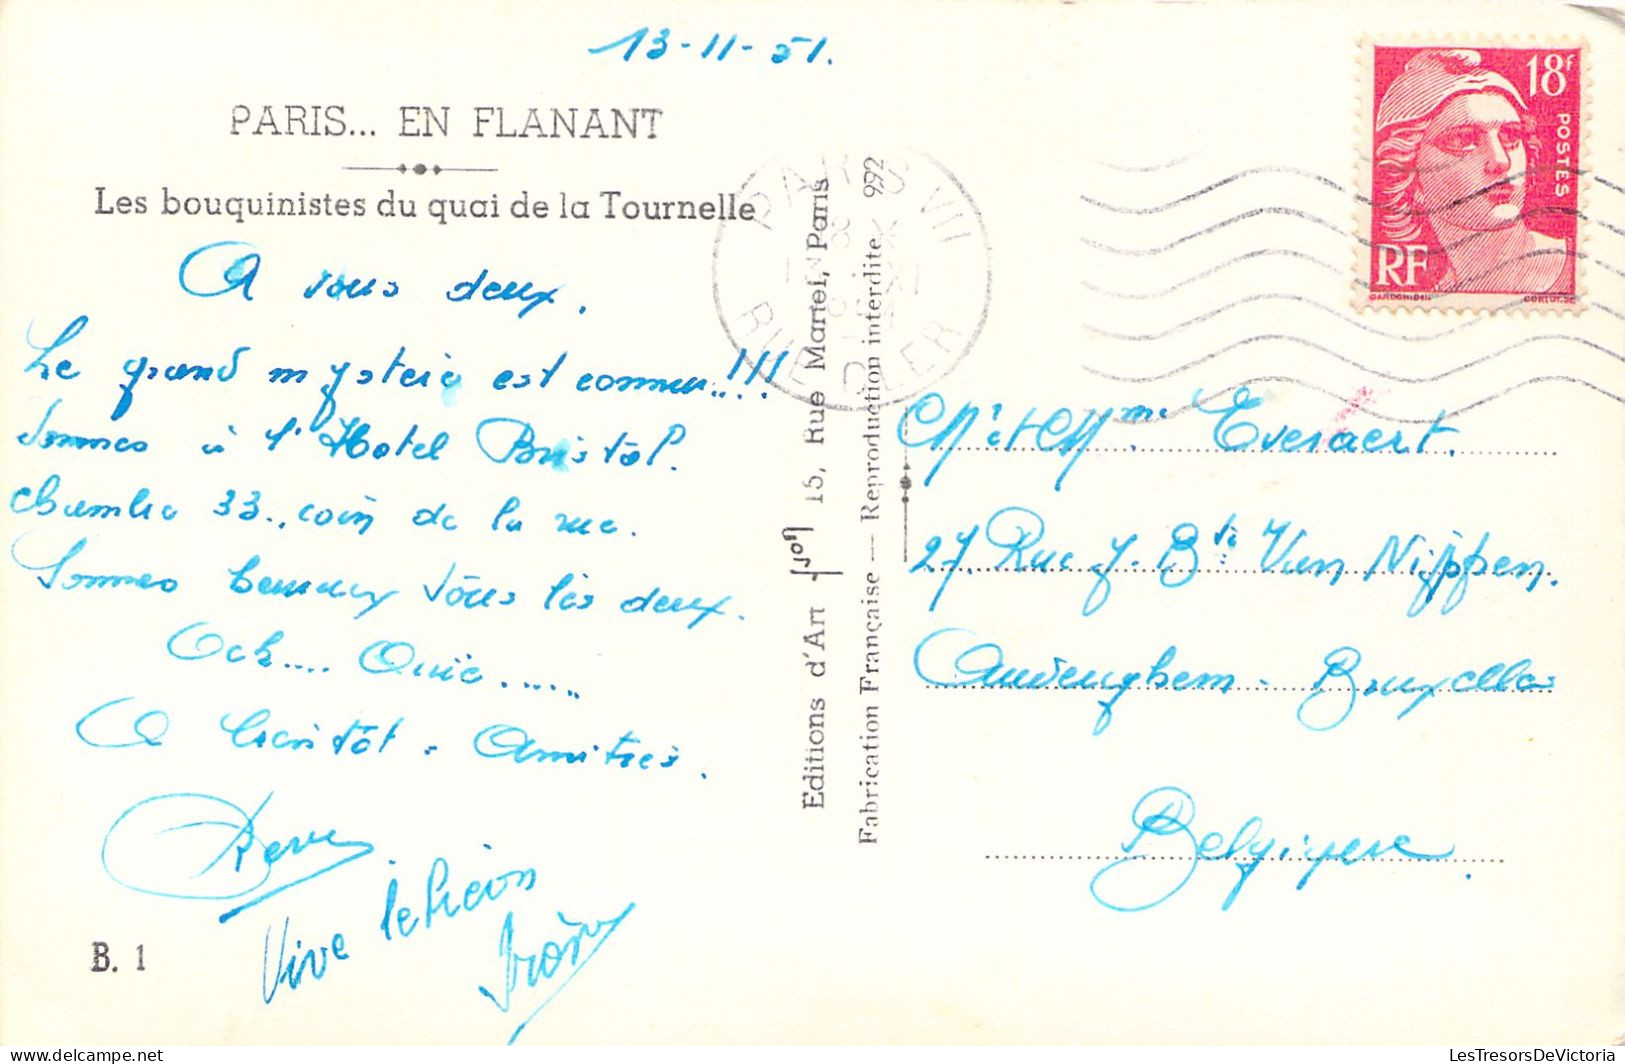 13-11-51.
PARIS... EN FLANANT
Les bouquinistes du quai de la Tournelle
A vous deux.
Le grand mystère est connu..!!!
Sommes à l'Hotel Bristol.
Chambre 33., coin de la rue.
Sommes heureux tous les deux.
Och.... Ouie......
A bientôt. Amitiés.
Vive
B. 1
Editions d'Art Yvon 15, Rue Martel, Paris
Fabrication Française — Reproduction interdite 992
PARIS VII
RUE CLER
18F
POSTES
RF
GANDON DEL
CORTOT. SC
Mr et Mme Everaert.
27. Rue J. Bte Van Nijppen.
Audenghem - Bruxelles
Belgique.
delcampe.net
LesTresorsDeVictoria